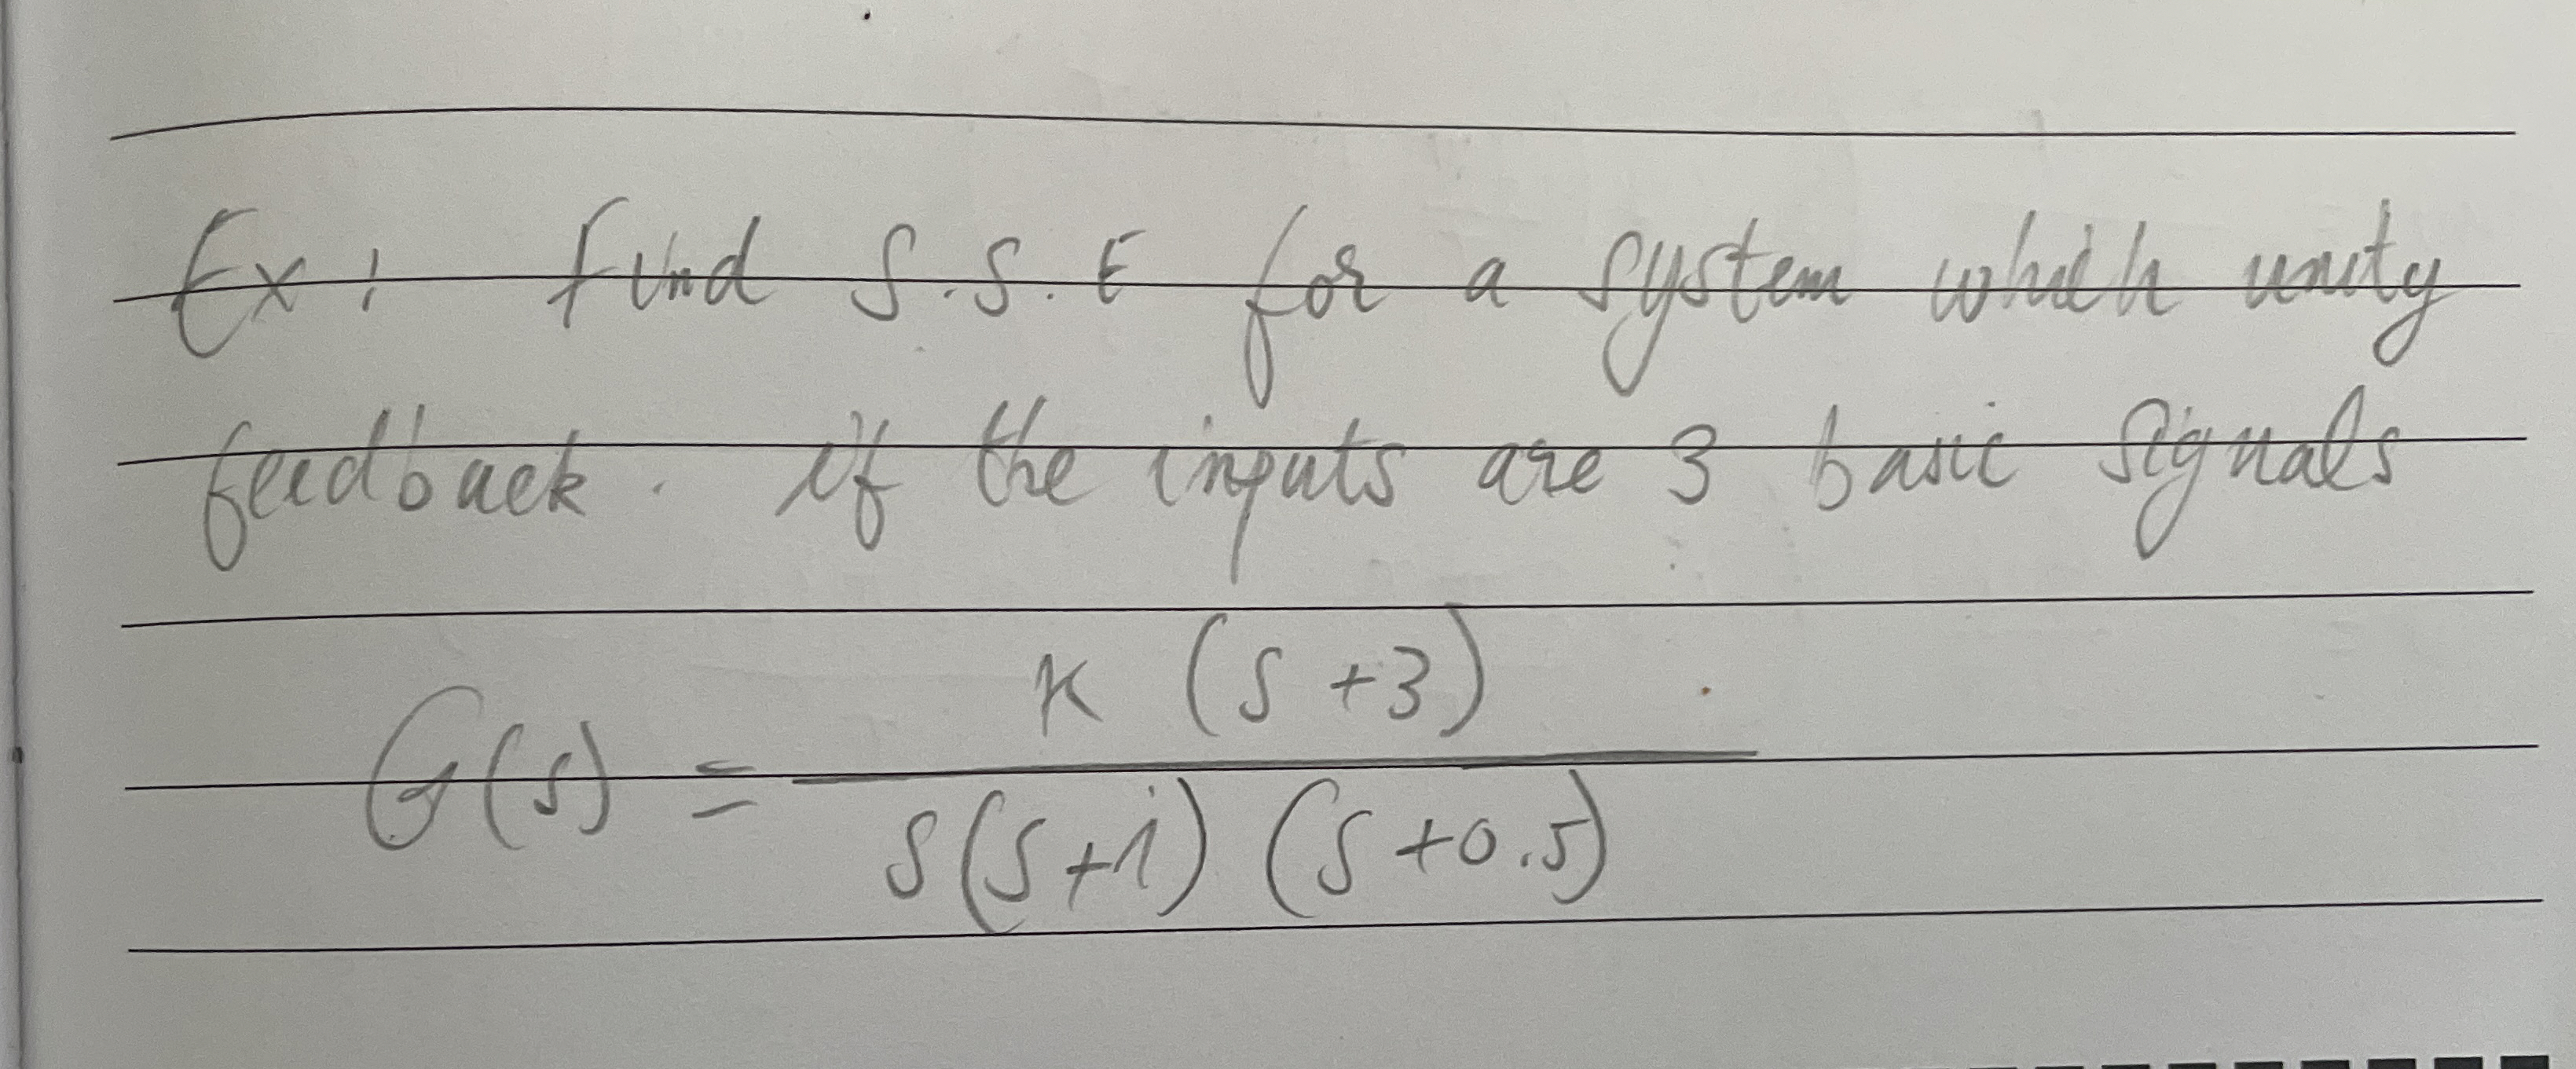 Ex: find S.S.E for a system which unity
feedback. if the inputs are 3 basic signals
K (S+3)
G(s) =
S(S+1) (S+0.5)